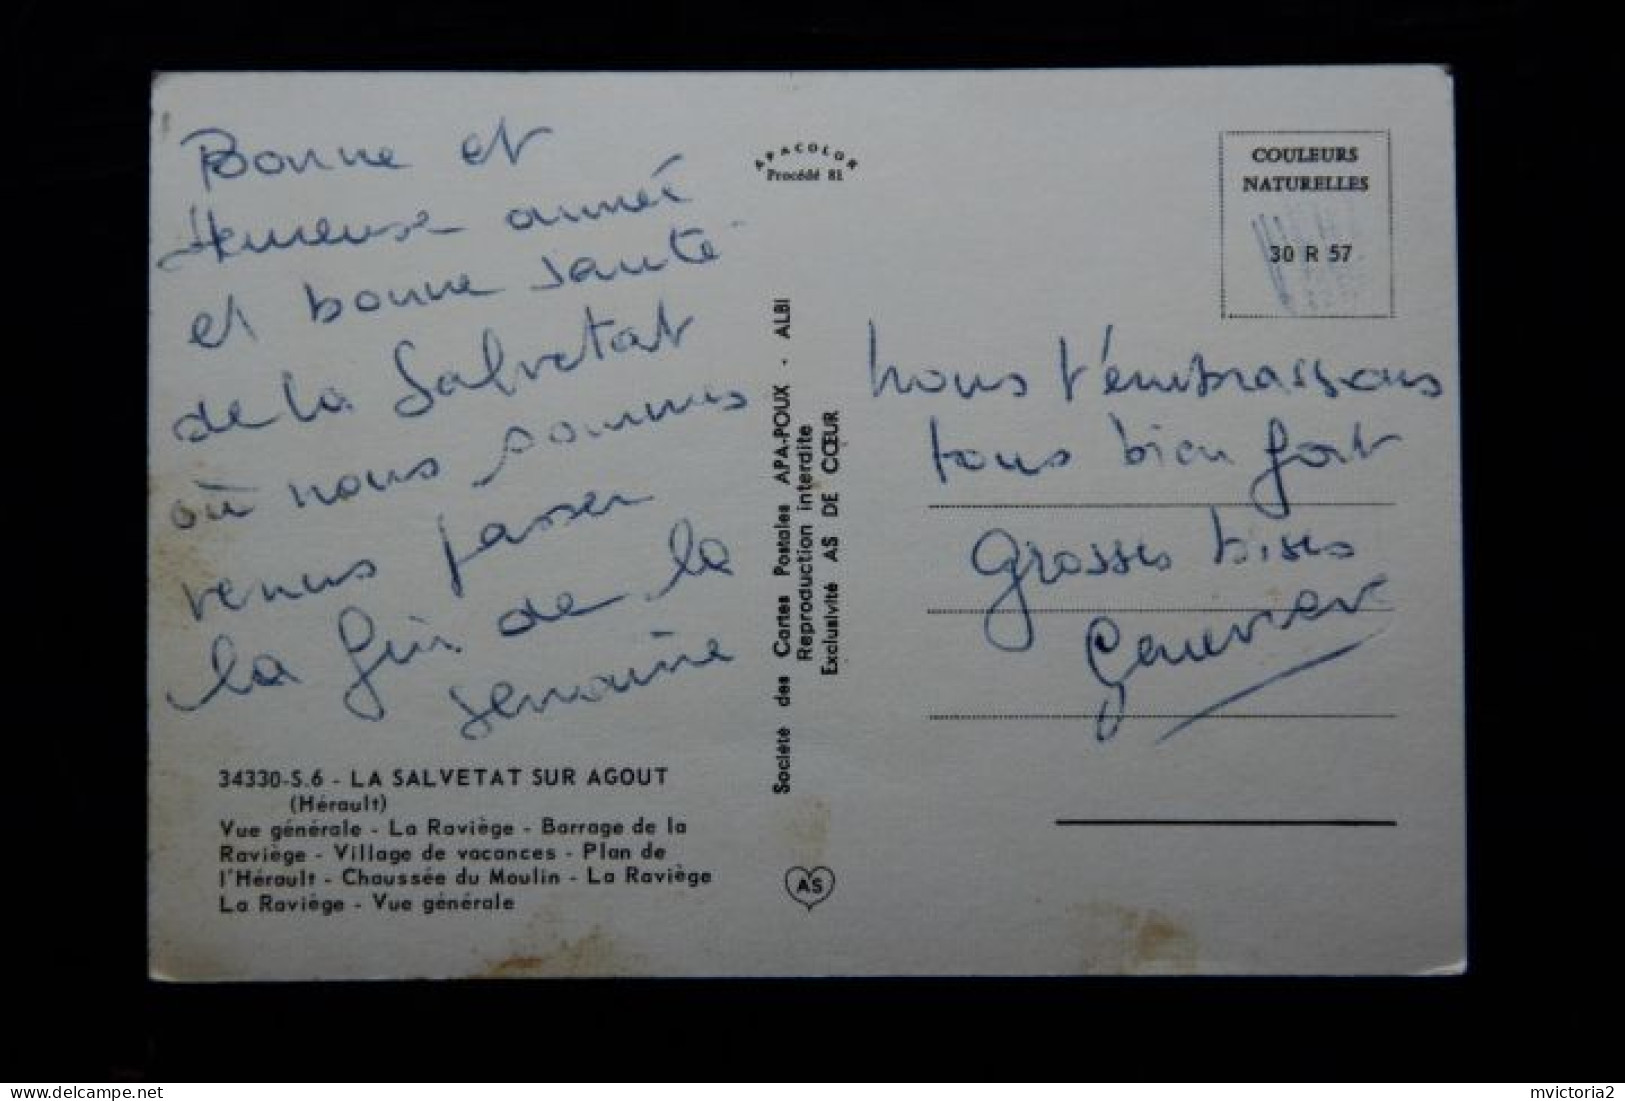 Bonne et
Heureuse année
et bonne santé
de la Salvetat
où nous sommes
venus passer
la fin de la
semaine
34330-S.6 - LA SALVETAT SUR AGOUT
(Hérault)
Vue générale - La Raviège - Barrage de la
Raviège - Village de vacances - Plan de
l'Hérault - Chaussée du Moulin - La Raviège
La Raviège - Vue générale
APACOLOR
Procédé 81
Société des Cartes Postales APA-POUX - ALBI
Reproduction interdite
Exclusivité AS DE CŒUR
AS
COULEURS
NATURELLES
30 R 57
nous t'embrassons
tous bien fort
grosses bises
mvictoria2